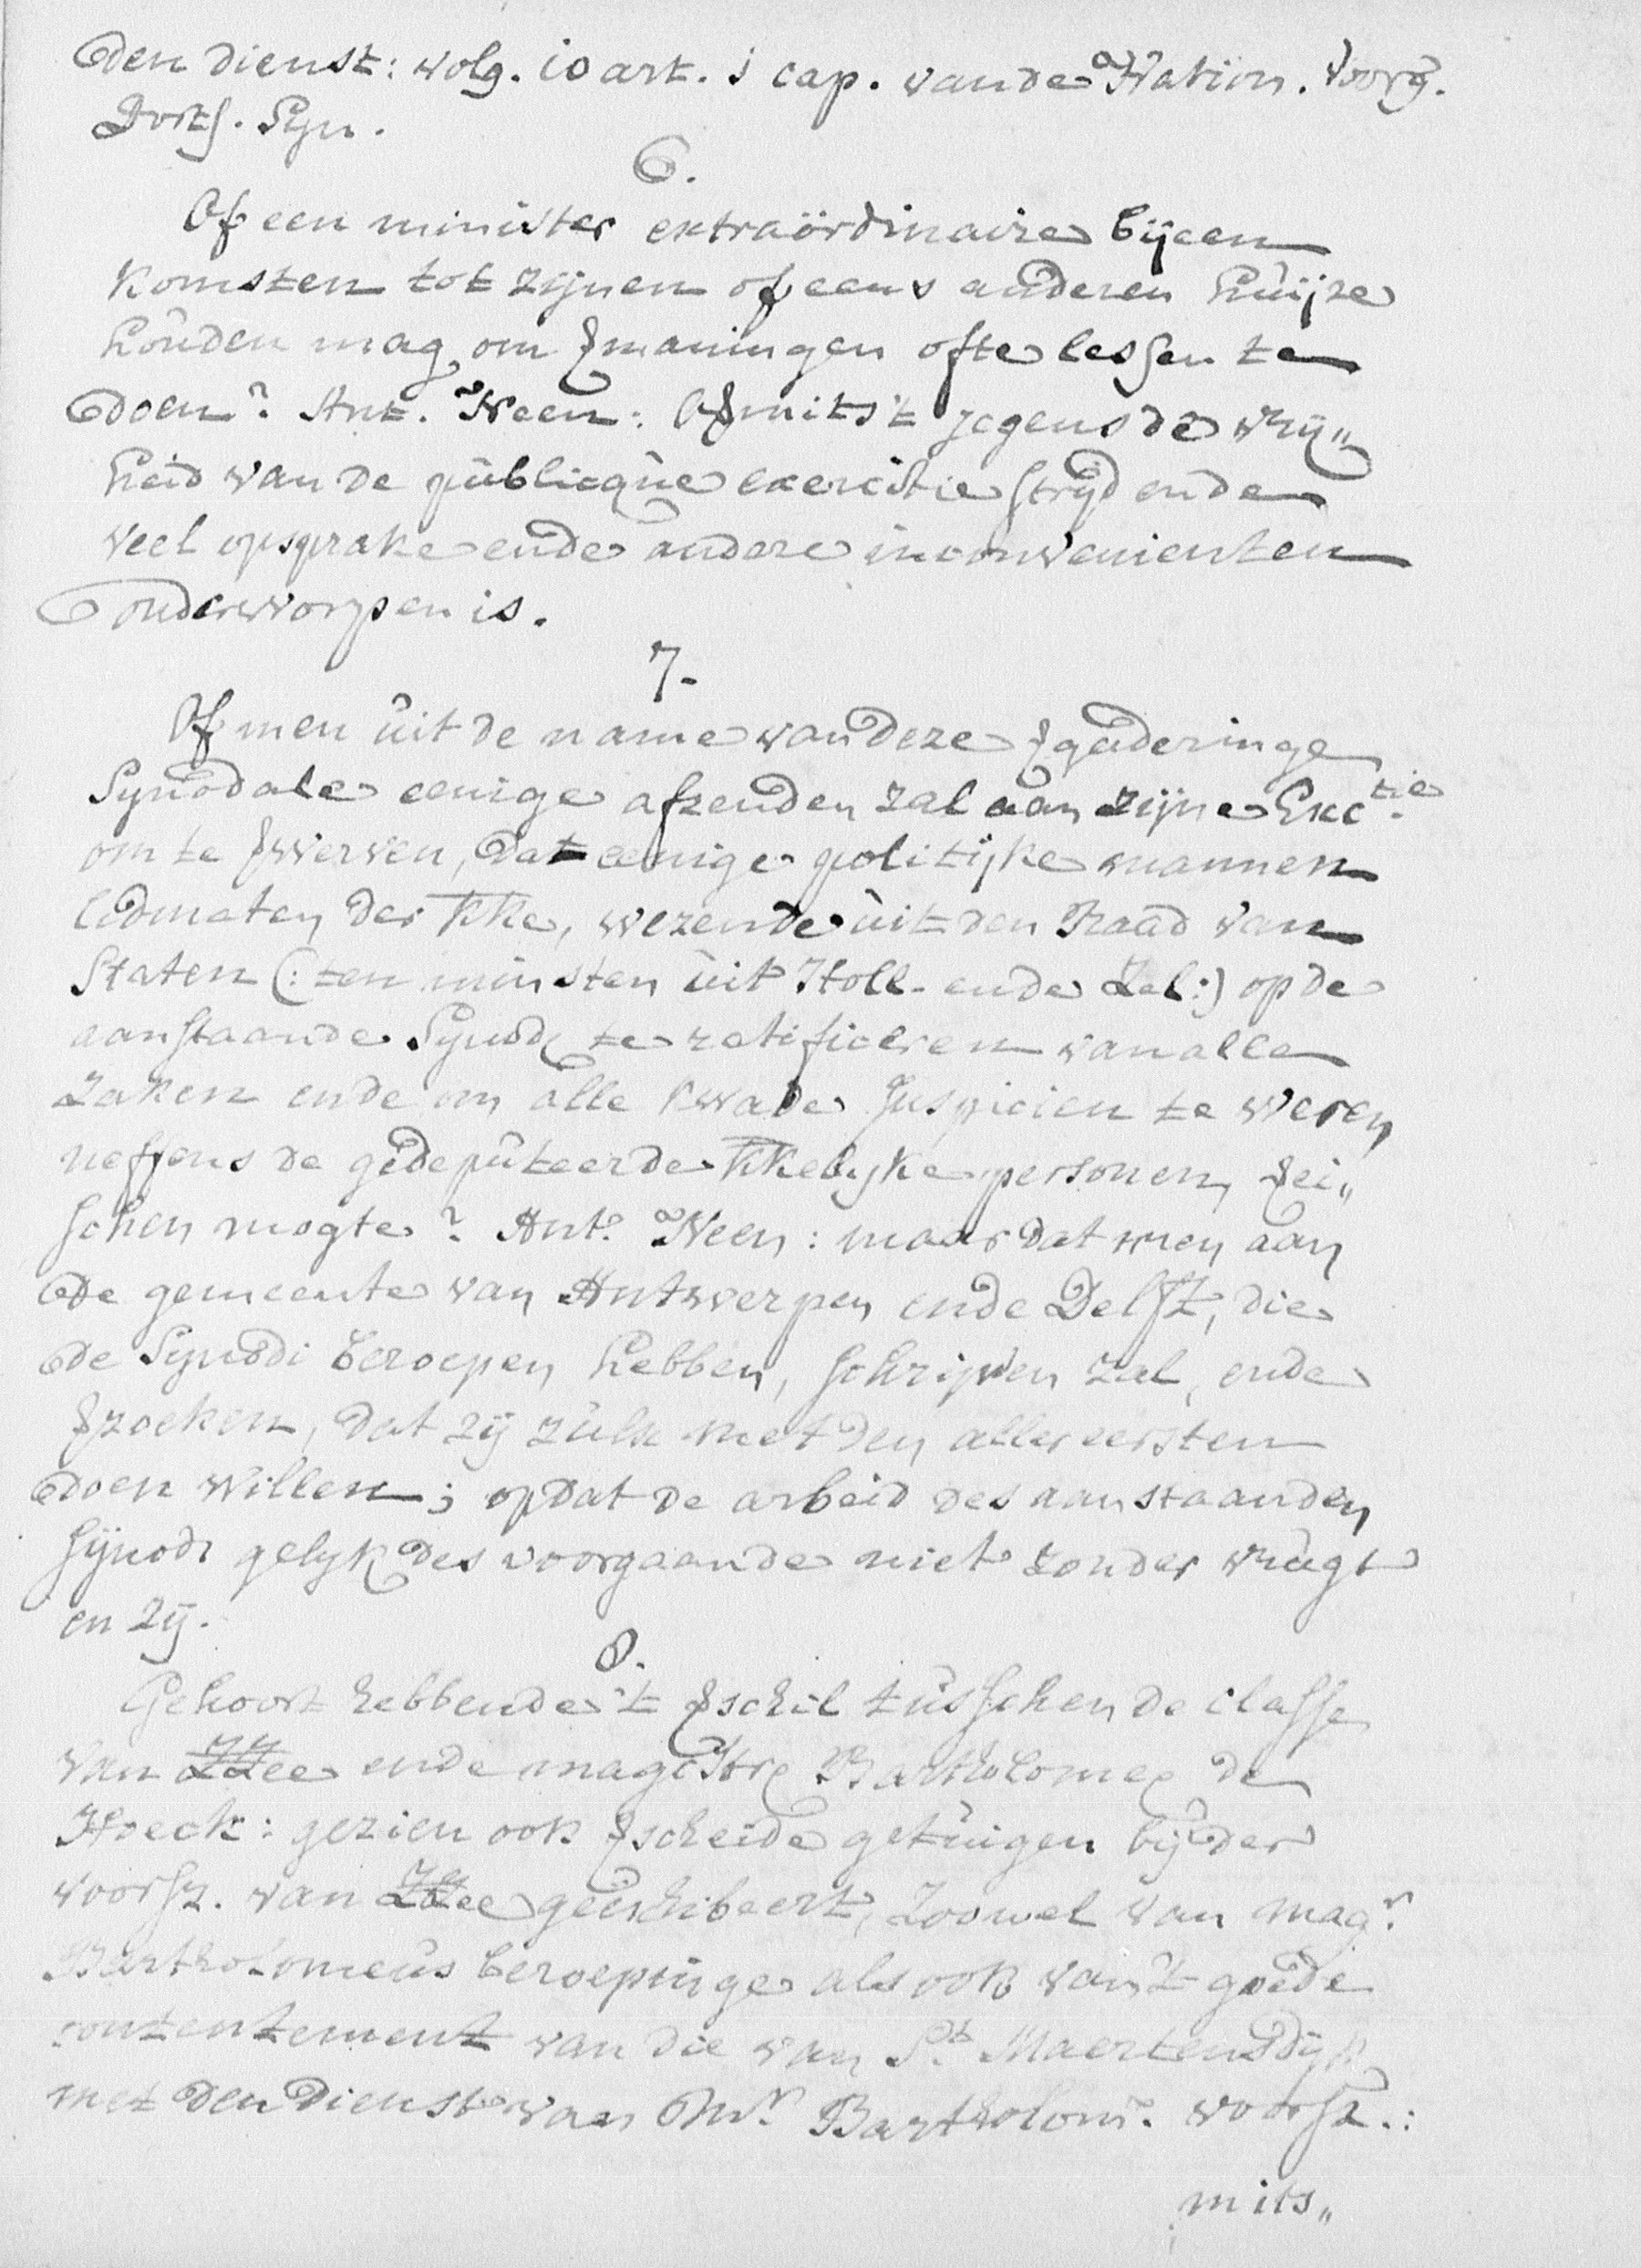 den dienst: volg. 10 art. 1 cap. van de Nation. voorg.
Dorts. Syn.
6.
Of een minister extraördinaire bijeen
komsten tot zijnen of eens anderen huijze
houden mag, om ꝟmaningen ofte lessen te
doen? Ant. Neen: Oꝟmits 't jegens de vrij„
heid van de publicque exercitie strijd ende
veel opsprake ende andere inconvenienten
onderworpen is.
7.
Of men uit de name van deze ꝟgaderinge
Synodale eenige afzenden zal aan zijne Exc.tie
om te ꝟwerven, dat eenige politijke mannen
lidmaten der kke, wezende uit den Raad van
Staten (: ten minsten uit Holl. ende Zel:) op de
aanstaande Synodo te ratificeren van alle
zaken ende om alle kwade suspicien te weren
neffens de gedeputeerde kkelyke personen, ꝟei„
schen mogte? Ant. Neen: maar dat men aan
de gemeente van Antwerpen ende Delft, die
de Synodi beroepen hebben, schrijven zal, ende
ꝟzoeken, dat zij zulx met den allereersten
doen willen; opdat de arbeid des aanstaanden
Synodi gelyk des voorgaande niet zonder vrugt
en zij.
8.
Gehoort hebbende 't ꝟschil tusschen de classe
van ZZee ende magistro Bartholomeo de
Hoeck: gezien ook ꝟscheide getuigen bij der
voorsz. van ZZee geëxhibeert, zoowel van magr.
Bartholomeus beroepinge als ook van 't goede
contentement van die van St. Maertensdijk
met den dienst van Mr. Bartholom. voorsz.:
mits„